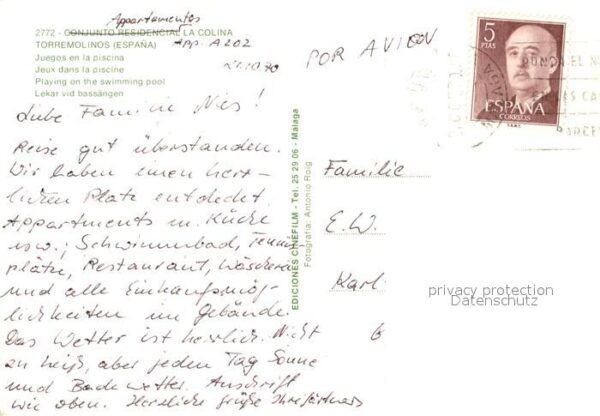 Appartamentos
2772 - CONJUNTO RESIDENCIAL LA COLINA
TORREMOLINOS (ESPAÑA) App. A202
Juegos en la piscina
Jeux dans la piscine
Playing on the swimming pool
Lekar vid bassängen
POR AVION
5
PTAS
ESPAÑA
CORREOS
Liebe Familie Nies!
Reise gut überstanden.
Wir haben einen herr-
lichen Platz entdeckt.
Appartments m. Küche
usw.; Schwimmbad, Tennis-
plätze, Restaurant, Wäscherei
und alle Einkaufsmög-
lichkeiten im Gebäude.
Das Wetter ist herrlich. Nicht
zu heiß, aber jeden Tag Sonne
und Badewetter. Anschrift
wie oben. Herzliche Grüße
EDICIONES CINEFILM - Tel. 25 29 06 - Málaga
Fotografía: Antonio Roig
Familie
E.W.
Karl
6
privacy protection
Datenschutz